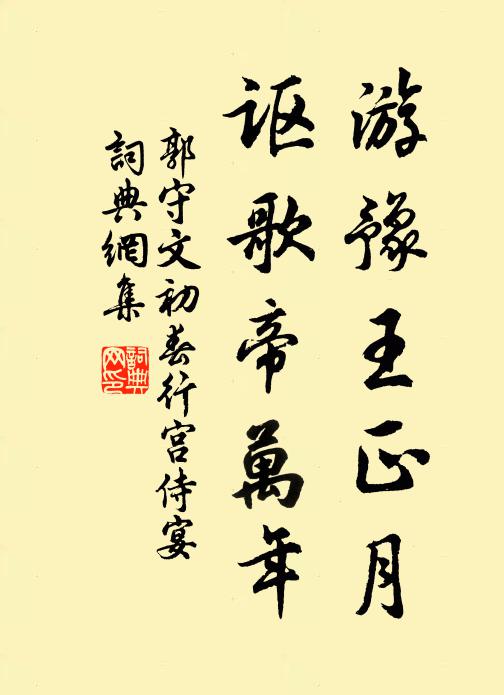 游豫王正月
讴歌帝萬年
郭守文初春行宫侍宴
詞典網集
詞典網印